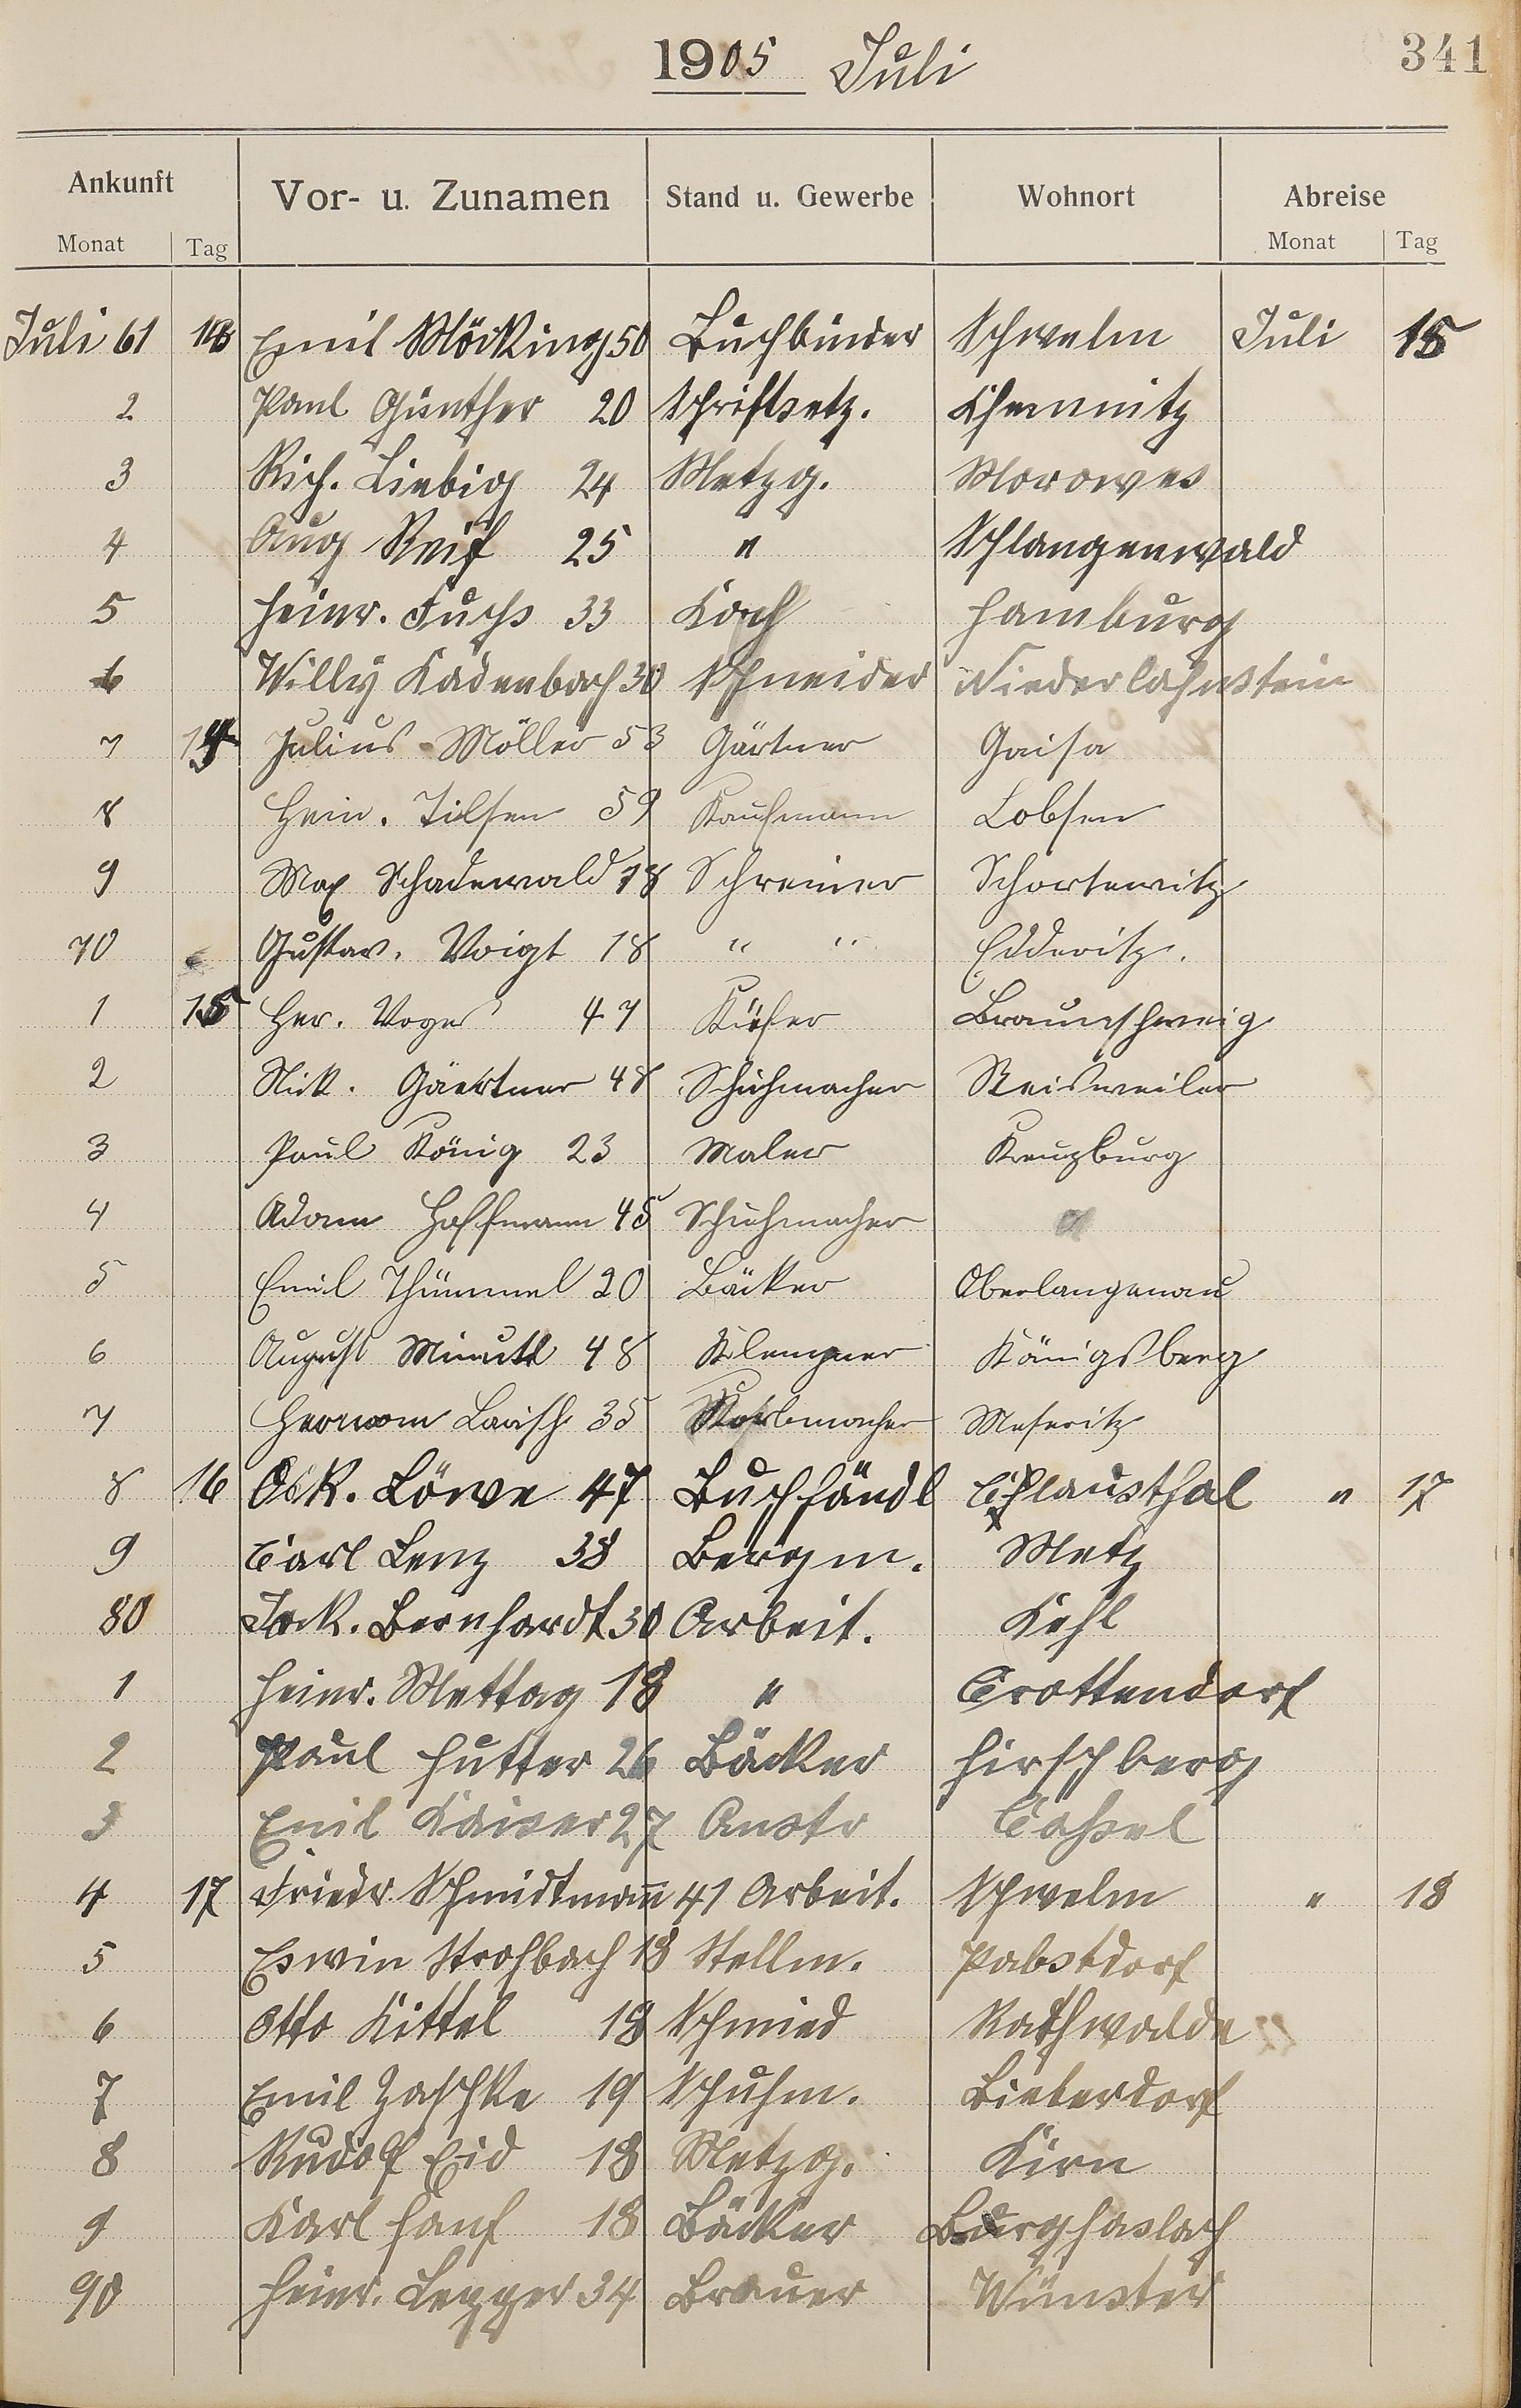 1905 Juli 341
Ankunft Vor- u. Zunamen Stand u. Gewerbe Wohnort Abreise
Monat Tag Monat Tag
Juli 61 Emil Möcking 50 Buchbinder Schwelm Juli 15
2 Paul Günther 20 Schriftsetz. Chemnitz
3 Rich. Liebig 24 Metzg. Morowes
4 Aug Reif 25 " Schlangenwald
5 Heinr. Fuchs 33 Koch Hamburg
6 Willy Kadenbach 30 Schneider Niederlahnstein
7 14 Julius Möller 53 Gärtner Gaisa
8 Hein. Tilsen 59 Kaufmann Lobsen
9 Max Schadewald 18 Schreiner Schortewitz
70 Gustav. Voigt 18 " " Edderitz.
1 15 Her. Voges 47 Küfer Braunschweig
2 Nick. Gäertner 48 Schuhmacher Reisweiler
3 Paul König 23 Maler Kreuzburg
4 Adam Hoffmann 45 Schuhmacher
5 Emil Thümmel 20 Bäcker Oberlangenau
6 August Minutt 48 Klempner Königsberg
7 Hermann Laisch 35 Korbmacher Meseritz
8 16 Osk. Löwe 47 Buchhändl Clausthal " 17
9 Carl Lenz 38 Bergm. Metz
80 Jak. Bernhardt 30 Arbeit. Kehl
1 Heinr. Mettag 18 " Crottendorf
2 Paul Hutter 26 Bäcker Hirschberg
3 Emil Kaiser 27 Anstr Cassel
4 17 Friedr Schmidtmann 41 Arbeit. Schwelm " 18
5 Erwin Strohbach 18 Stellm. Pabstdorf
6 Otto Kittel 18 Schmied Rathwalde
7 Emil Zaschke 19 Schuhm. Bieberdorf
8 Rudolf Eid 18 Metzg. Kirn
9 Karl Hanf 18 Bäcker Burghaslach
90 Heinr. Lepper 34 Brauer Münster